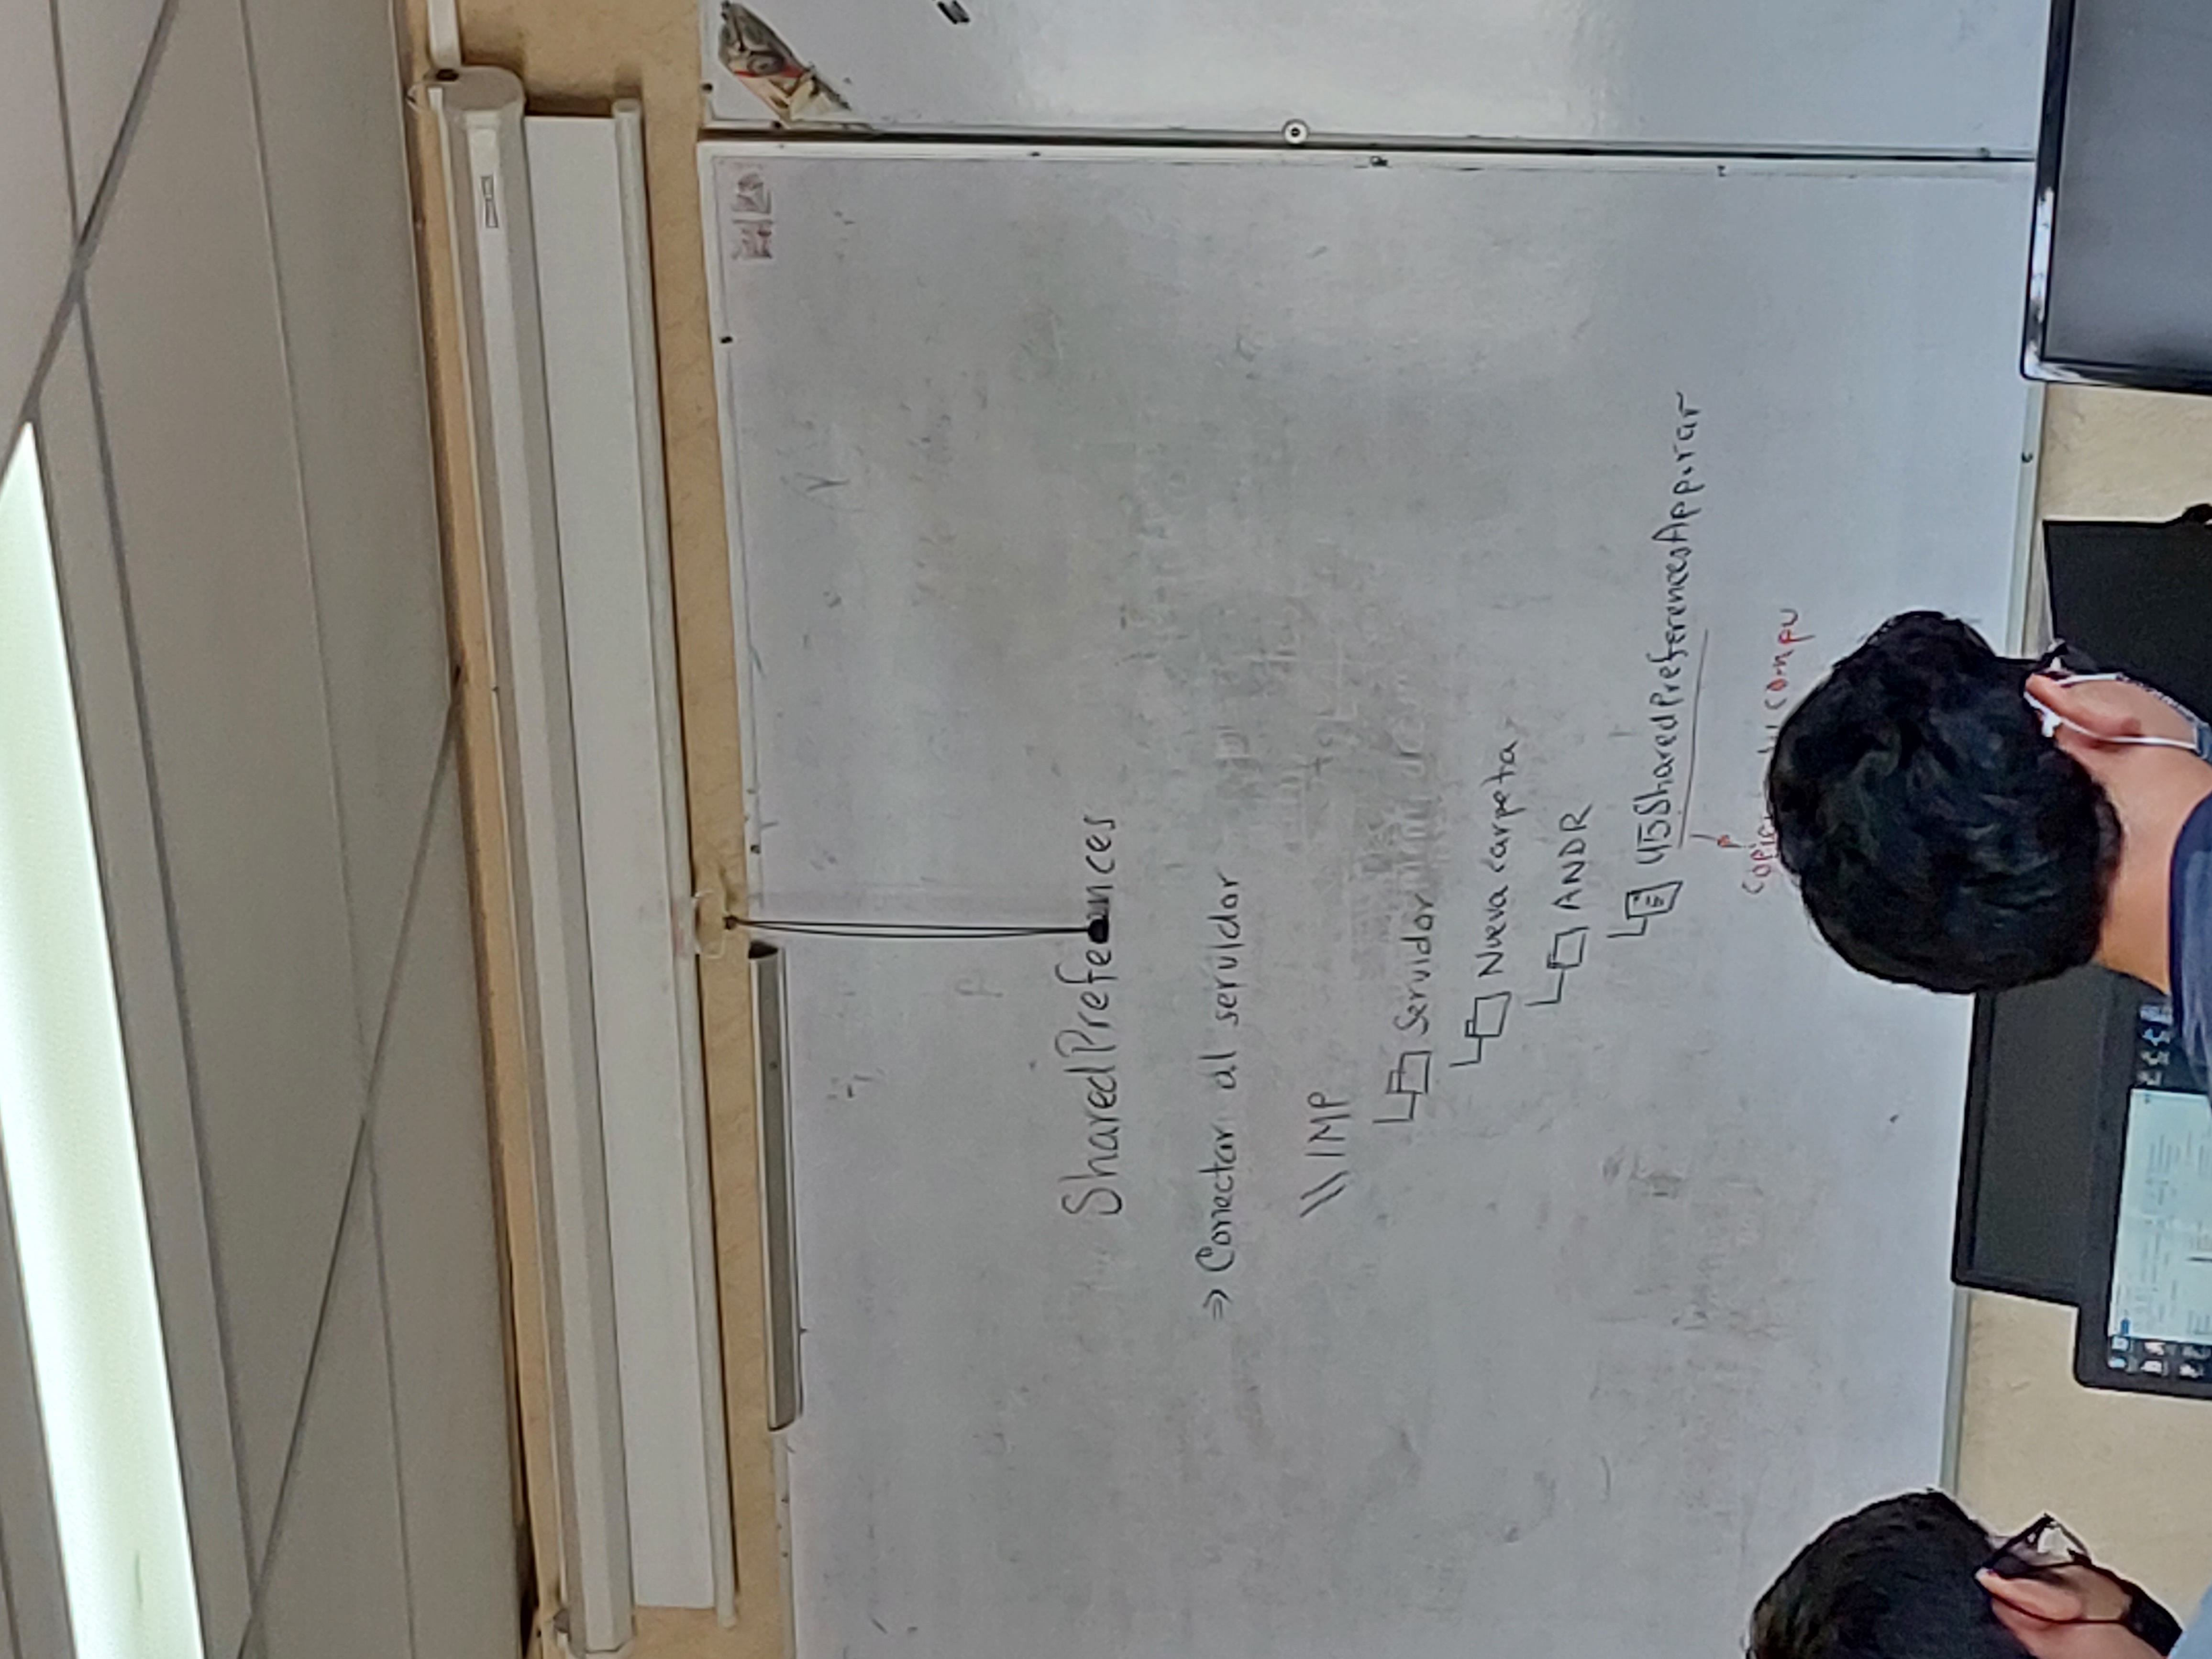 SharedPreferences
⇒ Conectar al servidor
\\IMP
Servidor
Nueva carpeta
ANDR
U5SharedPreferencesApp.rar
compu